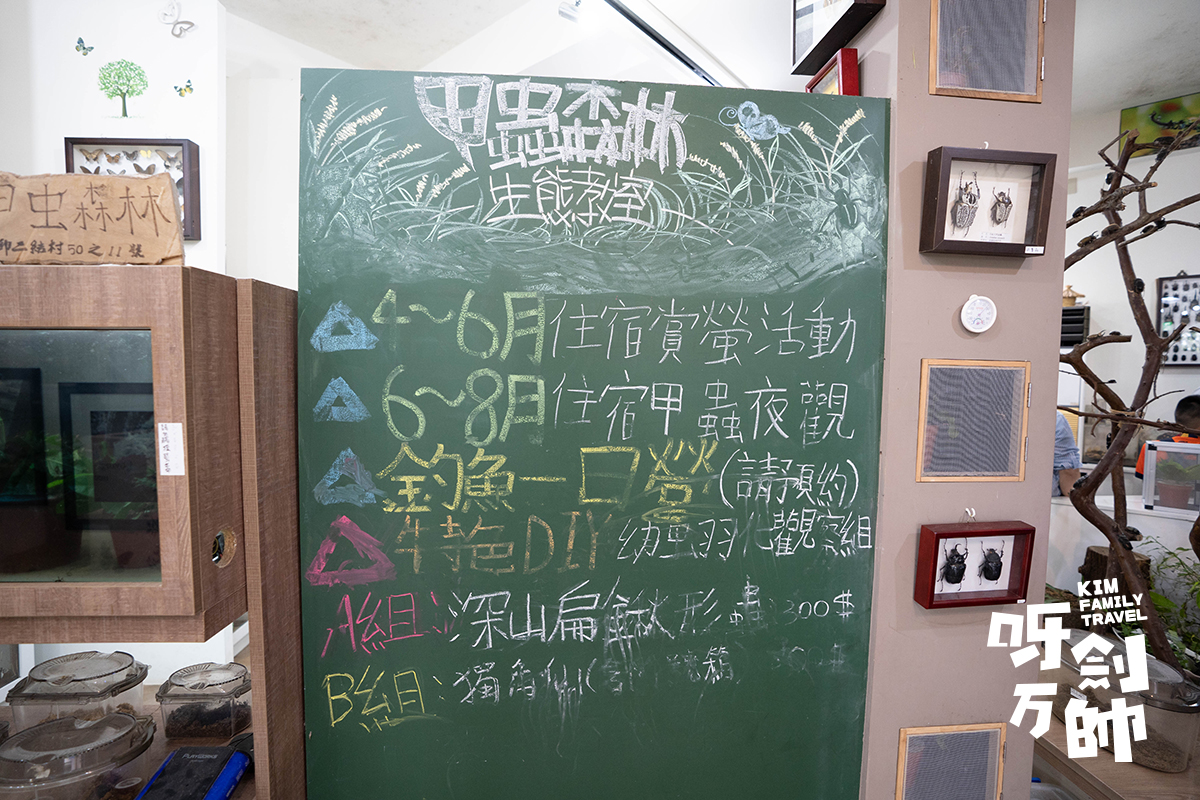 甲蟲森林
生態教室
4~6月住宿賞螢活動
6~8月住宿甲蟲夜觀
釣魚一日營(請預約)
特色DIY幼蟲羽化觀察組
A組:深山扁鍬形蟲300$
B組:獨角仙
甲虫森林
二結村50之11號
KIM
FAMILY
TRAVEL
呀劍
万帥